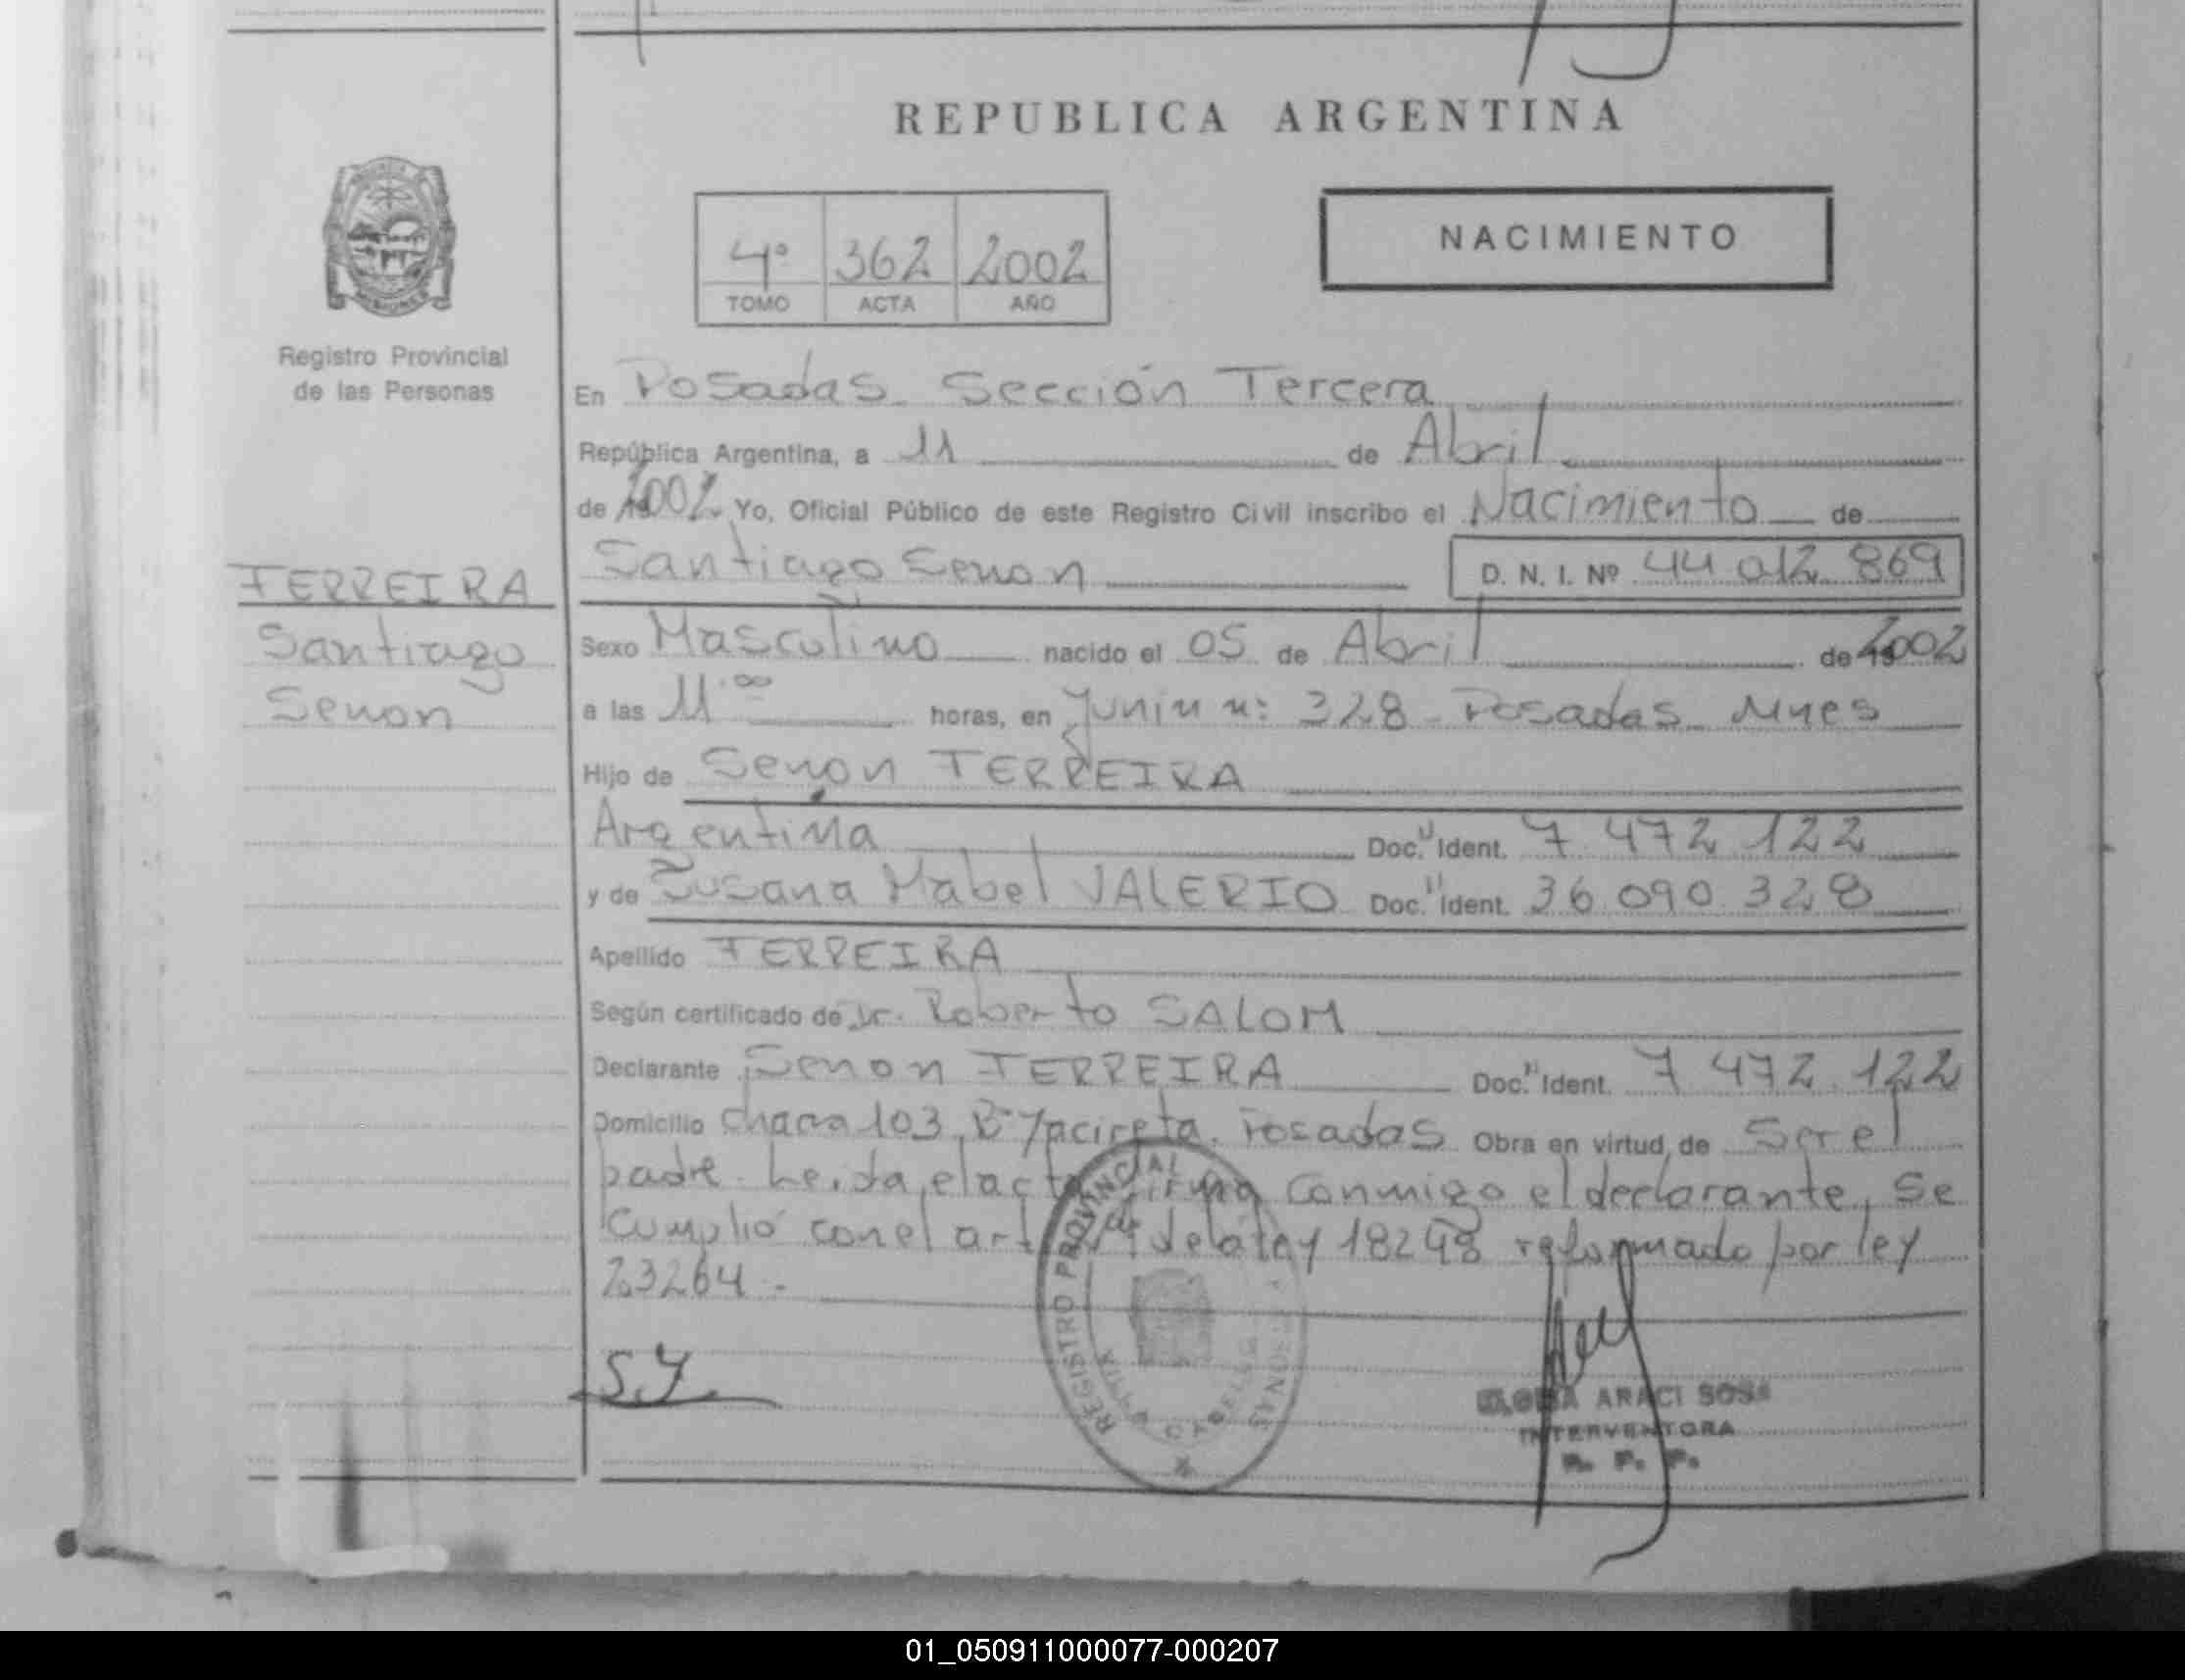 REPUBLICA ARGENTINA
4º 362 2002
TOMO ACTA AÑO
NACIMIENTO
Registro Provincial
de las Personas
En Posadas Sección Tercera
República Argentina, a 11 de Abril
de 2002 Yo, Oficial Público de este Registro Civil inscribo el Nacimiento de
Santiago Senon D. N. I. Nº 44 012 869
FERREIRA
Santiago
Senon
Sexo Masculino nacido el 05 de Abril de 2002
a las 11.00 horas, en Junin n: 328 Posadas Mnes
Hijo de Senon FERREIRA
Argentina Doc. Ident. 7 472 122
y de Susana Mabel VALERIO Doc. Ident. 36 090 328
Apellido FERREIRA
Según certificado de Dr. Roberto SALOM
Declarante Senon FERREIRA Doc. Ident. 7 472 122
Domicilio Chacra 103, Bº Yacireta. Posadas Obra en virtud de Ser el
padre. Leida el acta firma conmigo el declarante, Se
Cumplió con el art de la ley 18248 reformado por ley
23264.-
S.F.
REGISTRO PROVINCIAL
ARACI SOSA
INTERVENTORA
R. P. P.
01_050911000077-000207